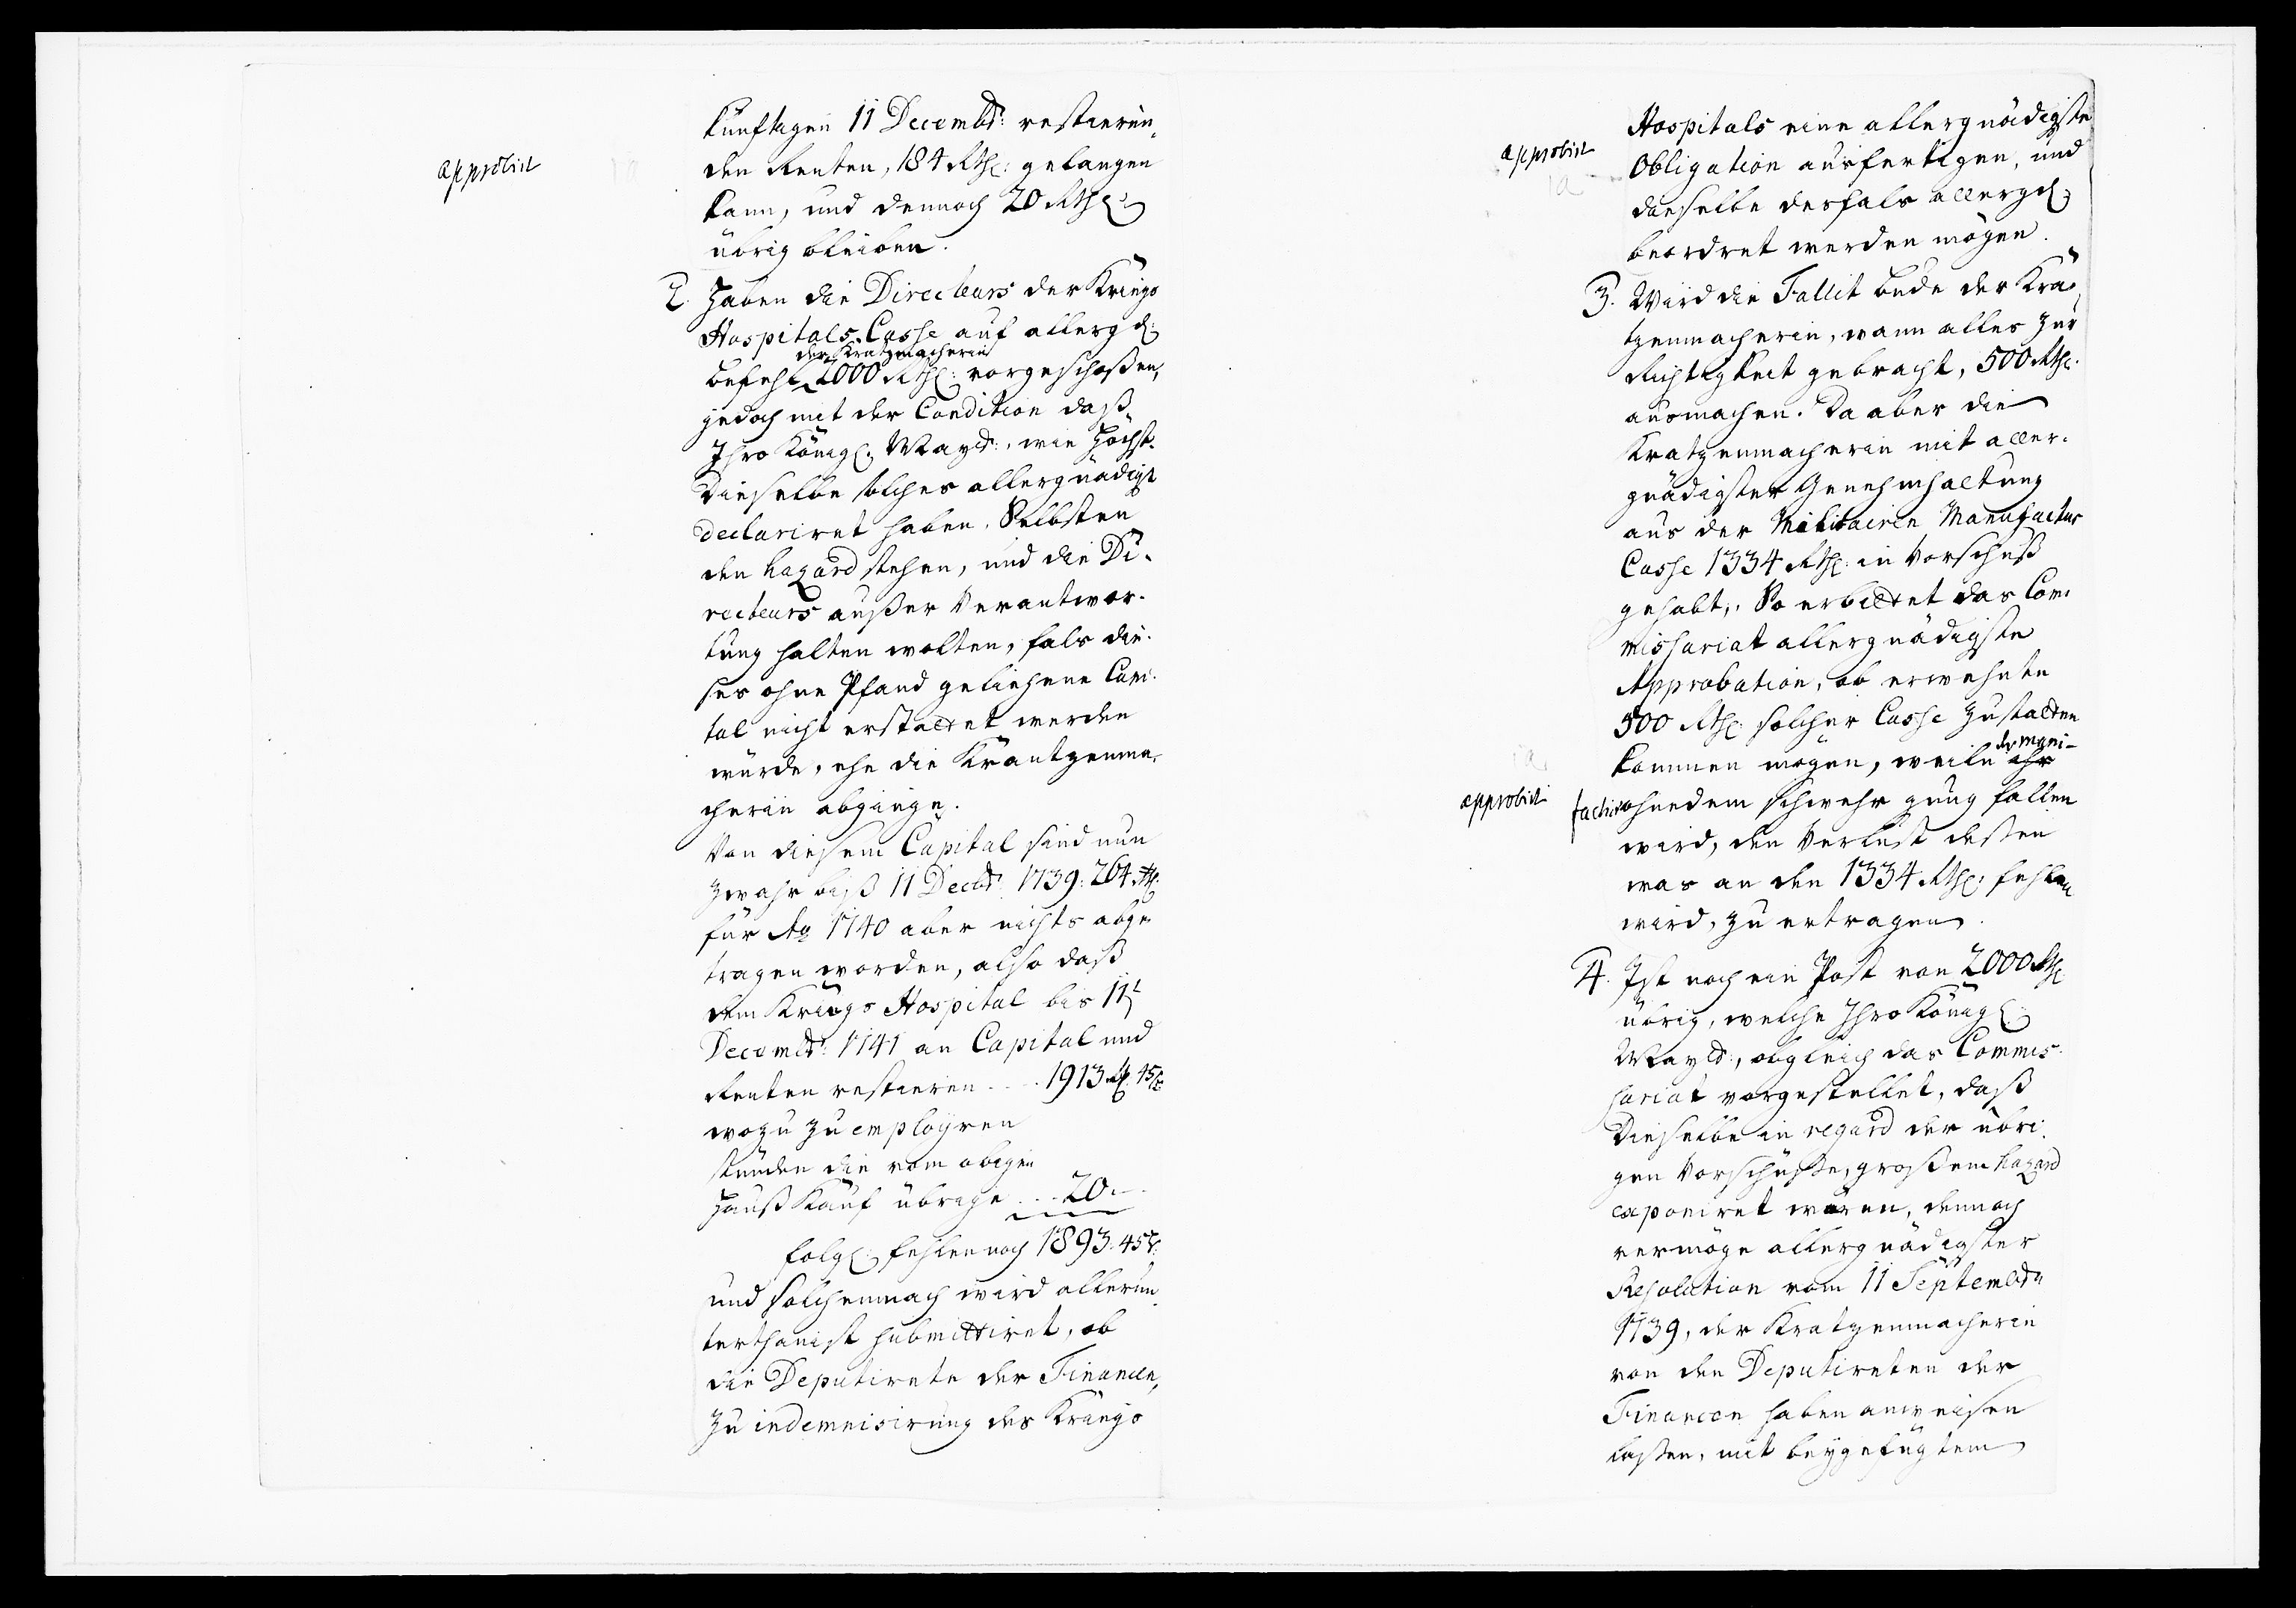 approbirt
künftigen 11 Decembr: restieren-
den Renten, 184 Rthl: gelangen
kann, und dennoch 20 Rthl:
übrig bleiben.
2. Haben die Directeurs der Kriegs
Hospitals Casse auf allergd:
der Kratzmacherin
befehl 2000 Rthl: vorgeschoßen,
jedoch mit der Condition daß
Ihro Königl: Mayt:, wie Höchst-
Dieselbe solches allergnädigst
declariret haben, Selbsten
den hazard stehen, und die Di-
recteurs außer Verantwor-
tung halten wolten, fals die-
ses ohne Pfand geliehene Capi-
tal nicht erstattet werden
würde, ehe die Kräntzenma-
cherin abginge.
Von diesem Capital sind nun
zwahr biß 11 Decbr: 1739: 264 Rthl:
für Ao 1740 aber nichts abge-
tragen worden, also daß
dem Kriegs Hospital bis 11t
Decembr: 1741 an Capital und
Renten restieren . . . 1913 Rthl. 45ß
wozu zu employren
stünden die vom obigen
Hauß Kauf übrige . . . 20.-
folgl: fehlen noch 1893. 45ß:
und solchemnach wird allerun-
terthänigst submittiret, ob
die Deputirete der Financen,
zu indemnisirung des Kriegs
approbirt
Hospitals eine allergnädigste
Obligation ausfertigen, und
dieselbe desfals allergd:
beordret werden mögen.
3. Wird die Fallit bude der Kra-
tzenmacherin, wann alles zur
Richtigkeit gebracht, 500 Rthl.
ausmachen. Da aber die
Kratzenmacherin mit aller-
gnädigster Genehmhaltung
aus der Militairen Manufactur
Casse 1334 Rthl: in Vorschuß
gehabt, So erbittet das Com-
missariat allergnädigste
Approbation, ob erwehnte
500 Rthl: solcher Casse zustatten
der Manu-
kommen mögen, weiln ihr
approbirt
factur ohnedem schwehr gnug fallen
wird, den Verlust deßen
was an den 1334 Rthl: fehlen
wird, zu ertragen.
4. Ist noch ein Post von 2000 Rthl
übrig, welche Ihro Königl:
Mayt:, obgleich das Commis-
sariat vorgestellet, daß
Dieselbe in regard der übri-
gen Vorschüße, großem hazard
exponiret wären, dennoch
vermöge allergnädigster
Resolution vom 11 Septembr:
1739, der Kratzenmacherin
von den Deputireten der
Financen haben anweisen
laßen, mit beygefügtem